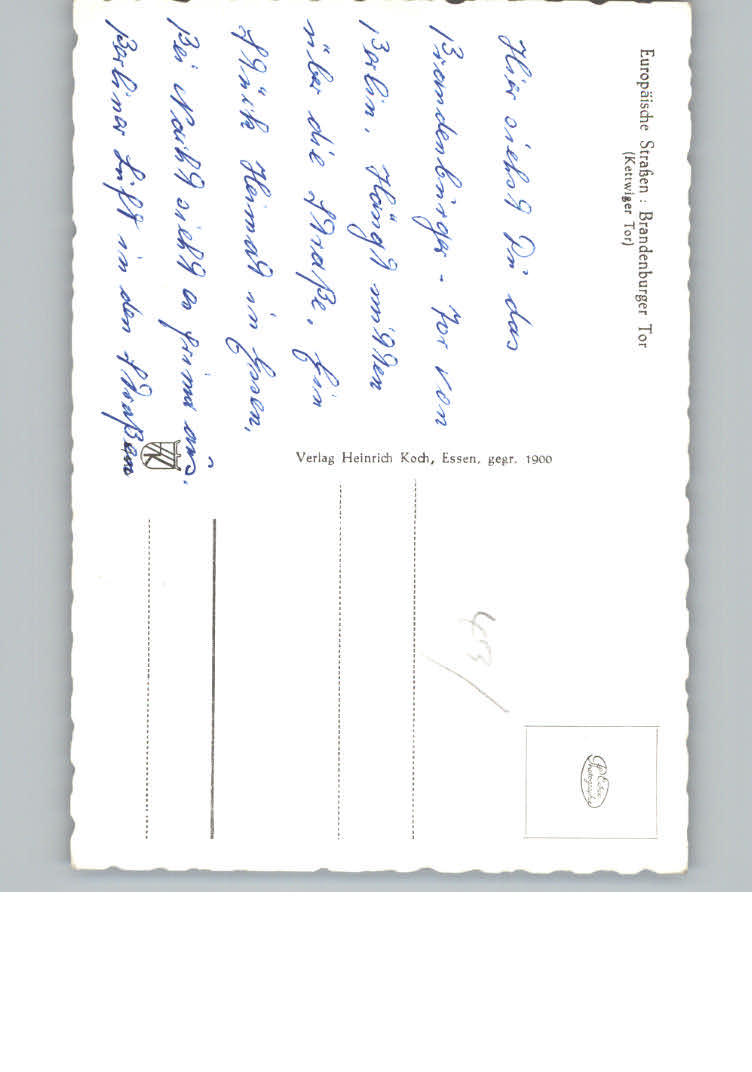 Europäische Straßen : Brandenburger Tor
(Kettwiger Tor)
Hier siehst Du das
Brandenburger - Tor von
Berlin. Hängt mitten
über die Straße. Ein
Stück Heimat in Essen.
Bei Nacht sieht es prima aus.
Berliner Luft in den Straßen
Verlag Heinrich Koch, Essen, gegr. 1900
Photographie